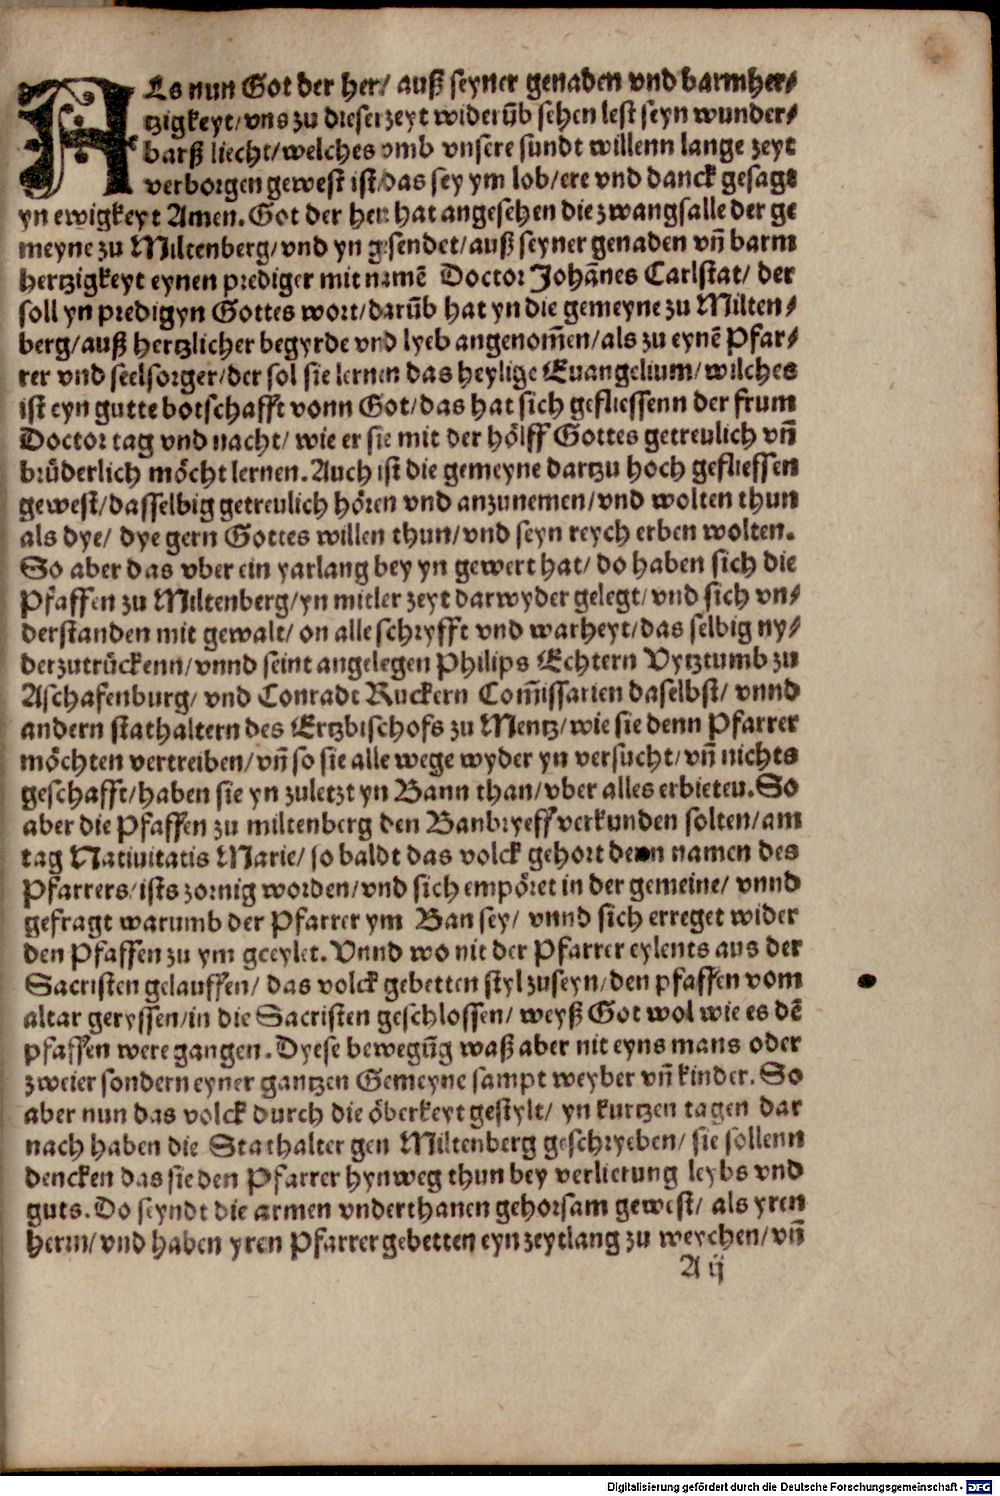 ALs nun Got der her/ auß seyner genaden vnd barmher⸗
tzigkeyt/ vns zu dieser zeyt widerūb sehen lest seyn wunder⸗
barß liecht/ welches vmb vnsere sundt willenn lange zeyt
verborgen gewest ist/ das sey ym lob/ ere vnd danck gesagt
yn ewigkeyt Amen. Got der herr hat angesehen die zwangsalle der ge
meyne zu Miltenberg/ vnd yn gesendet/ auß seyner genaden vñ barm
hertzigkeyt eynen prediger mit namē Doctor Johānes Carlstat/ der
soll yn predigyn Gottes wort/ darūb hat yn die gemeyne zu Milten⸗
berg/ auß hertzlicher begyrde vnd lyeb angenom̄en/ als zu eynē Pfar⸗
rer vnd seelsorger/ der sol sie lernen das heylige Euangelium/ wilches
ist eyn gutte botschafft vonn Got/ das hat sich gefliessenn der frum
Doctor tag vnd nacht/ wie er sie mit der hölff Gottes getreulich vñ
brüderlich möcht lernen. Auch ist die gemeyne dartzu hoch gefliessen
gewest/ dasselbig getreulich hören vnd anzunemen/ vnd wolten thun
als dye/ dye gern Gottes willen thun/ vnd seyn reych erben wolten.
So aber das vber ein yarlang bey yn gewert hat/ do haben sich die
Pfaffen zu Miltenberg/ yn mitler zeyt darwyder gelegt/ vnd sich vn⸗
derstanden mit gewalt/ on alle schryfft vnd warheyt/ das selbig ny⸗
derzutrückenn/ vnnd seint angelegen Philips Echtern Vytztumb zu
Aschafenburg/ vnd Conradt Ruckern Com̄issarien daselbst/ vnnd
andern stathaltern des Ertzbischofs zu Mentz/ wie sie denn Pfarrer
möchten vertreiben/ vñ so sie alle wege wyder yn versucht/ vñ nichts
geschafft/ haben sie yn zuletzt yn Bann than/ vber alles erbieten. So
aber die Pfaffen zu miltenberg den Banbryeff verkunden solten/ am
tag Natiuitatis Marie/ so baldt das volck gehort denn namen des
Pfarrers/ ists zornig worden/ vnd sich empöret in der gemeine/ vnnd
gefragt warumb der Pfarrer ym Ban sey/ vnnd sich erreget wider
den Pfaffen zu ym geeylet. Vnnd wo nit der Pfarrer eylents aus der
Sacristen gelauffen/ das volck gebetten styl zuseyn/ den pfaffen vom
altar geryssen/ in die Sacristen geschlossen/ weyß Got wol wie es dē
pfaffen were gangen. Dyese bewegūg waß aber nit eyns mans oder
zweier sondern eyner gantzen Gemeyne sampt weyber vñ kinder. So
aber nun das volck durch die öberkeyt gestylt/ yn kurtzen tagen dar
nach haben die Stathalter gen Miltenberg geschryeben/ sie sollenn
dencken das sie den Pfarrer hynweg thun bey verlierung leybs vnd
guts. Do seyndt die armen vnderthanen gehorsam gewest/ als yren
herrn/ vnd haben yren Pfarrer gebetten eyn zeytlang zu weychen/ vñ
A ij
Digitalisierung gefördert durch die Deutsche Forschungsgemeinschaft - DFG